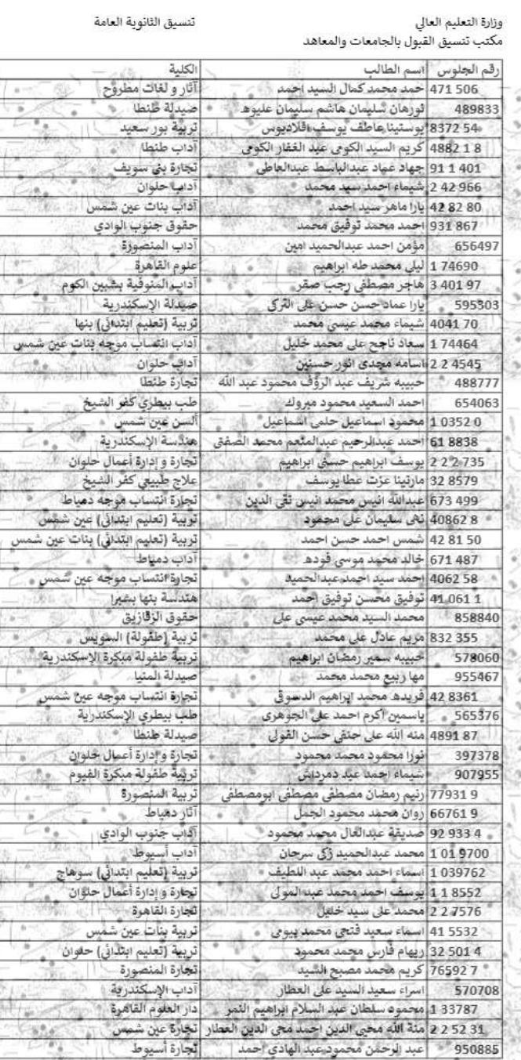 وزارة التعليم العالي
تنسيق الثانوية العامة
مكتب تنسيق القبول بالجامعات والمعاهد
رقم الجلوس اسم الطالب الكلية
471 506 حمد محمد كمال السيد احمد آثار و لغات مطروح
489833 نورهان سليمان هاشم سليمان عليوه صيدلة طنطا
8372 54 يوستينا عاطف يوسف اقلاديوس تربية بور سعيد
4882 1 8 كريم السيد الكومى عبد الغفار الكومى آداب طنطا
91 1 401 جهاد عماد عبدالباسط عبدالعاطى تجارة بنى سويف
2 42 966 شيماء احمد سيد محمد آداب حلوان
42 82 80 يارا ماهر سيد احمد آداب بنات عين شمس
931 867 احمد محمد توفيق محمد حقوق جنوب الوادي
656497 مؤمن احمد عبدالحميد امين آداب المنصورة
1 74690 ليلى محمد طه ابراهيم علوم القاهرة
3 401 97 هاجر مصطفى رجب صقر آداب المنوفية بشبين الكوم
595303 يارا عماد حسن حسن على التركى صيدلة الإسكندرية
4041 70 شيماء محمد عيسى محمد تربية (تعليم ابتدائي) بنها
1 74464 سعاد ناجح على محمد خليل آداب انتساب موجه بنات عين شمس
2 2 4545 اسامه مجدى انور حسنين آداب حلوان
488777 حبيبه شريف عبد الرؤف محمود عبد الله تجارة طنطا
654063 احمد السعيد محمود مبروك طب بيطري كفر الشيخ
1 0352 0 محمود اسماعيل حلمى اسماعيل ألسن عين شمس
61 8838 احمد عبدالرحيم عبدالمنعم محمد الصفتى هندسة الإسكندرية
2 2 2 735 يوسف ابراهيم حسنى ابراهيم تجارة و إدارة أعمال حلوان
32 8579 مارتينا عزت عطا يوسف علاج طبيعي كفر الشيخ
673 499 عبدالله انيس محمد انيس تقى الدين تجارة انتساب موجه دمياط
40862 8 نهى سليمان على محمود تربية (تعليم ابتدائي) عين شمس
42 81 50 شمس احمد حسن احمد تربية (تعليم ابتدائي) بنات عين شمس
671 487 خالد محمد موسى فوده آداب دمياط
4062 58 احمد سيد احمد عبدالحميد تجارة انتساب موجه عين شمس
41 061 1 توفيق محسن توفيق احمد هندسة بنها بشبرا
858840 محمد السيد محمد عيسى على حقوق الزقازيق
832 355 مريم عادل على محمد تربية (طفولة) السويس
578060 حبيبه سمير رمضان ابراهيم تربية طفولة مبكرة الإسكندرية
955467 مها ربيع محمد محمد صيدلة المنيا
42 8361 فريده محمد ابراهيم الدسوقى تجارة انتساب موجه عين شمس
565376 ياسمين اكرم احمد على الجوهرى طب بيطري الإسكندرية
4891 87 منه الله على حنفى حسن الفولى صيدلة طنطا
397378 نورا محمود محمد محمود تجارة و إدارة أعمال حلوان
907955 شيماء احمد عبد دمرداش تربية طفولة مبكرة الفيوم
77931 9 رنيم رمضان مصطفى مصطفى ابومصطفى تربية المنصورة
66761 9 روان محمد محمود الجمل آثار دمياط
92 933 4 صديقة عبدالعال محمد محمود آداب جنوب الوادي
1 01 9700 محمد عبدالحميد زكى سرحان آداب أسيوط
1 039762 اسماء احمد محمد عبد اللطيف تربية (تعليم ابتدائي) سوهاج
1 1 8552 يوسف احمد محمد عبد المولى تجارة و إدارة أعمال حلوان
2 2 7576 محمد على سيد خليل تجارة القاهرة
41 5532 اسماء سعيد فتحى محمد بيومى تربية بنات عين شمس
32 501 4 ريهام فارس محمد محمود تربية (تعليم ابتدائي) حلوان
76592 7 كريم محمد مصبح السيد تجارة المنصورة
570708 اسراء سعيد السيد على العطار آداب الإسكندرية
1 33787 محمود سلطان عبد السلام ابراهيم النمر دار العلوم القاهرة
2 2 52 31 منة الله محيى الدين احمد محى الدين العطار تجارة عين شمس
950885 عبد الرحمن محمود عبد الهادي احمد تجارة أسيوط